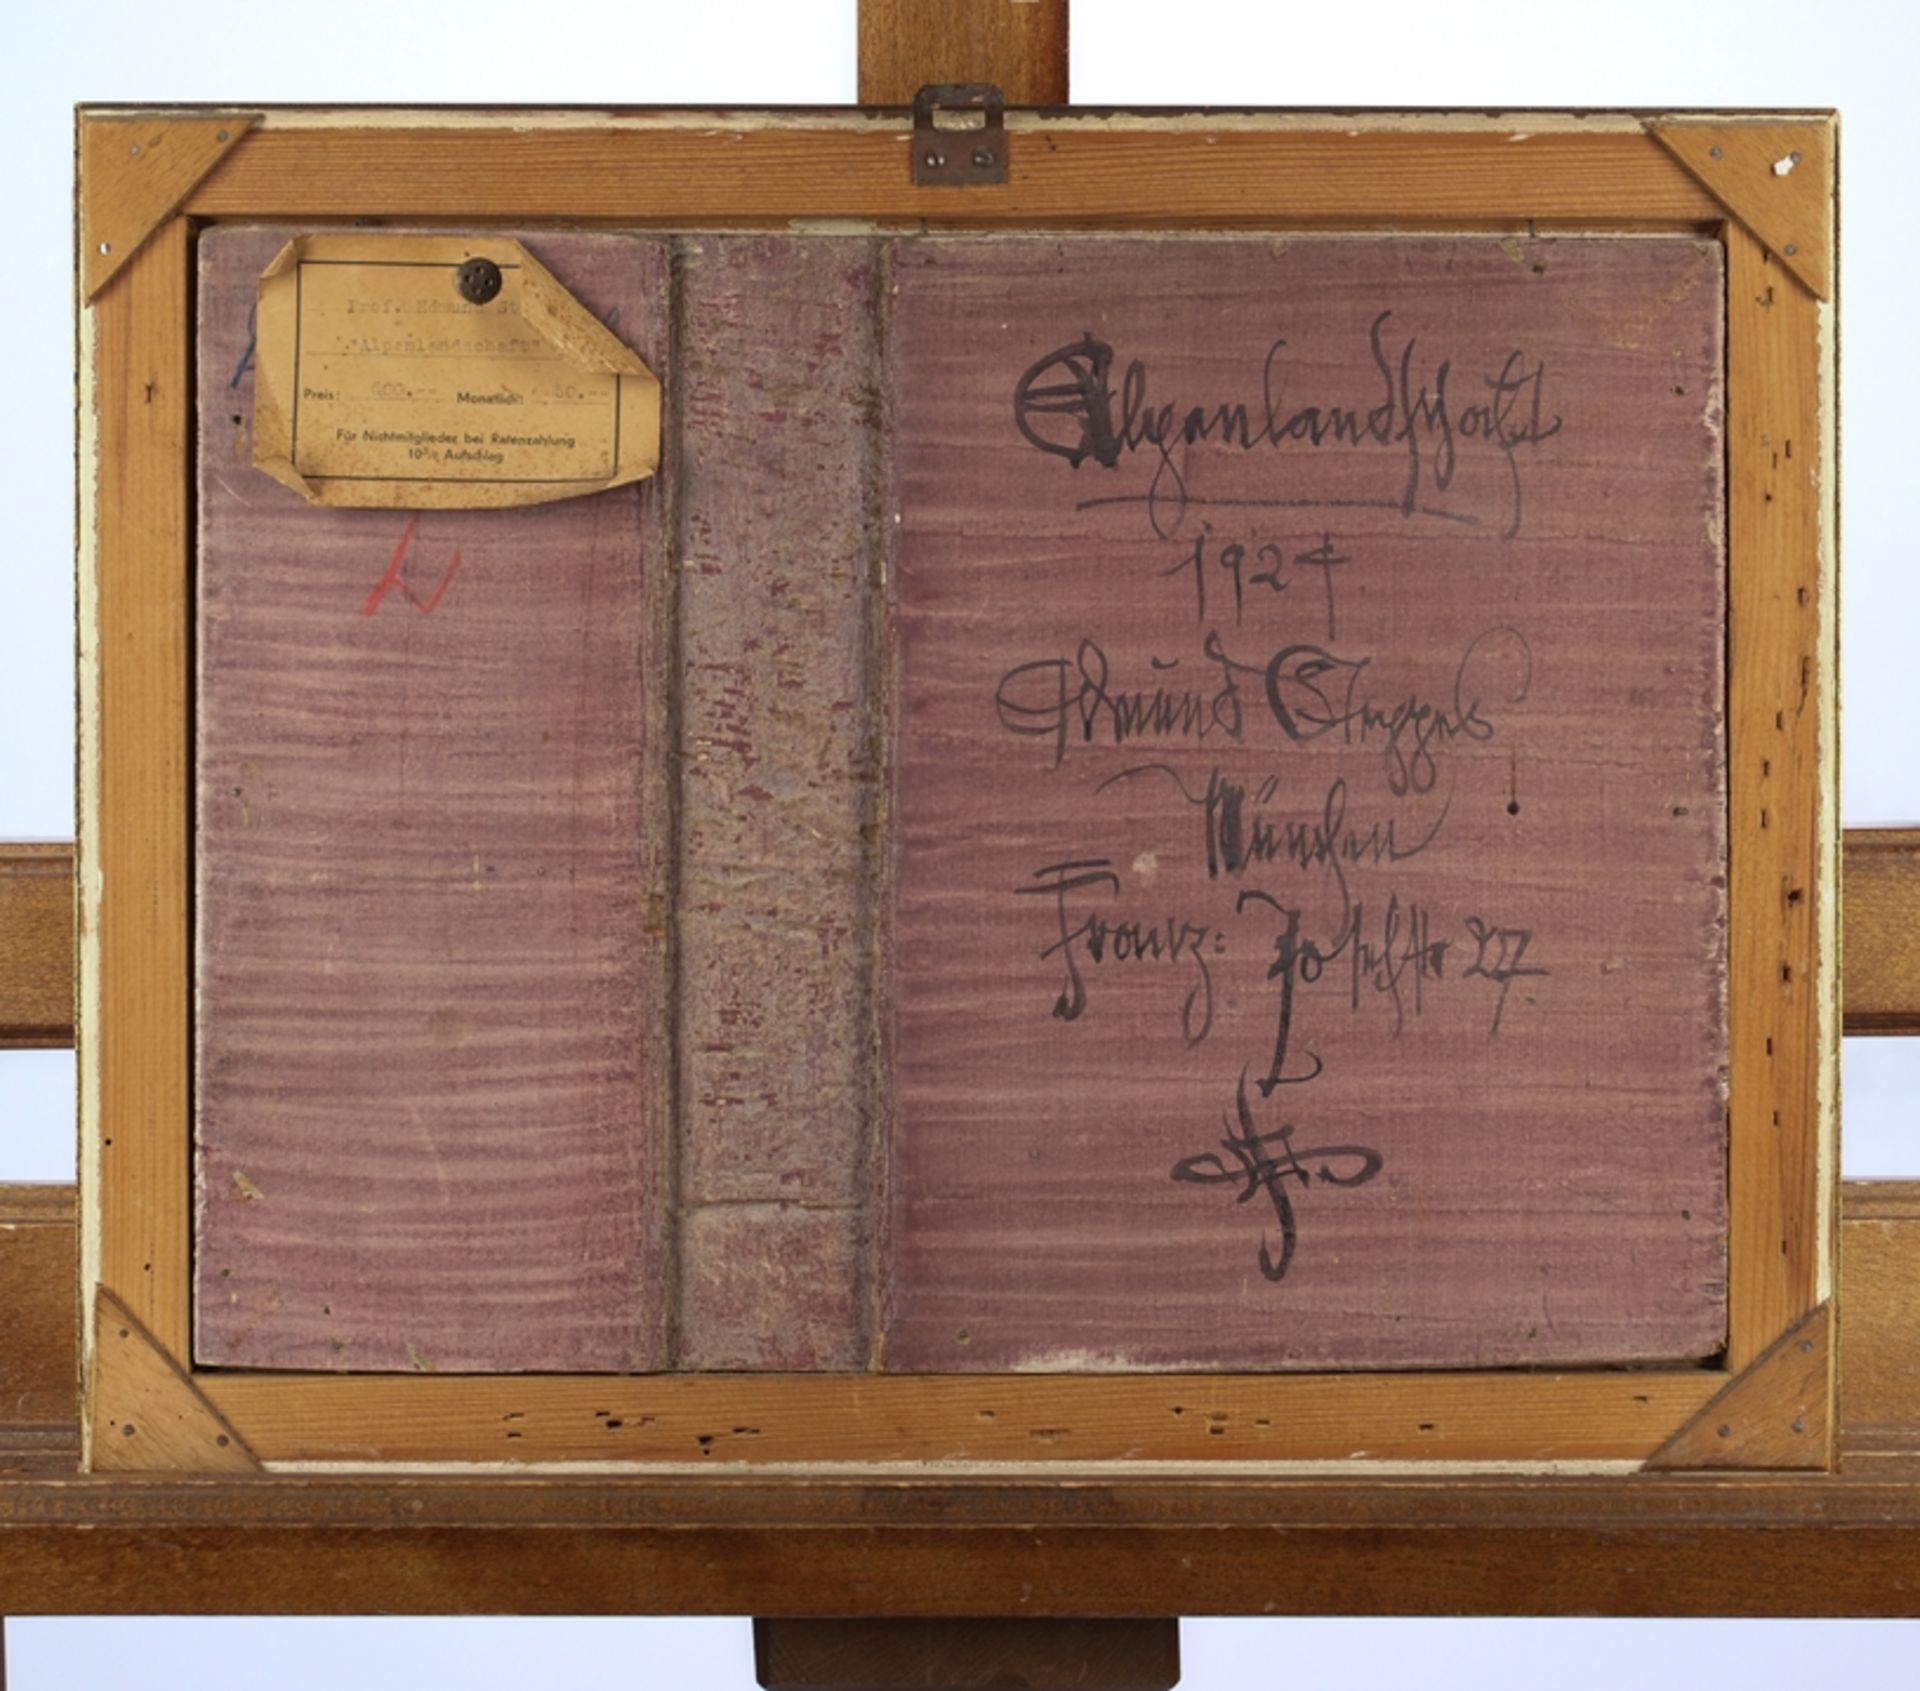 Prof. Edmund St
"Alpenlandschaft"
Preis: 600.-- Monatlich: 50.--
Für Nichtmitglieder bei Ratenzahlung
10% Aufschlag
Alpenlandschaft
1924
Edmund Steppes
München
Franz: Josefstr 27